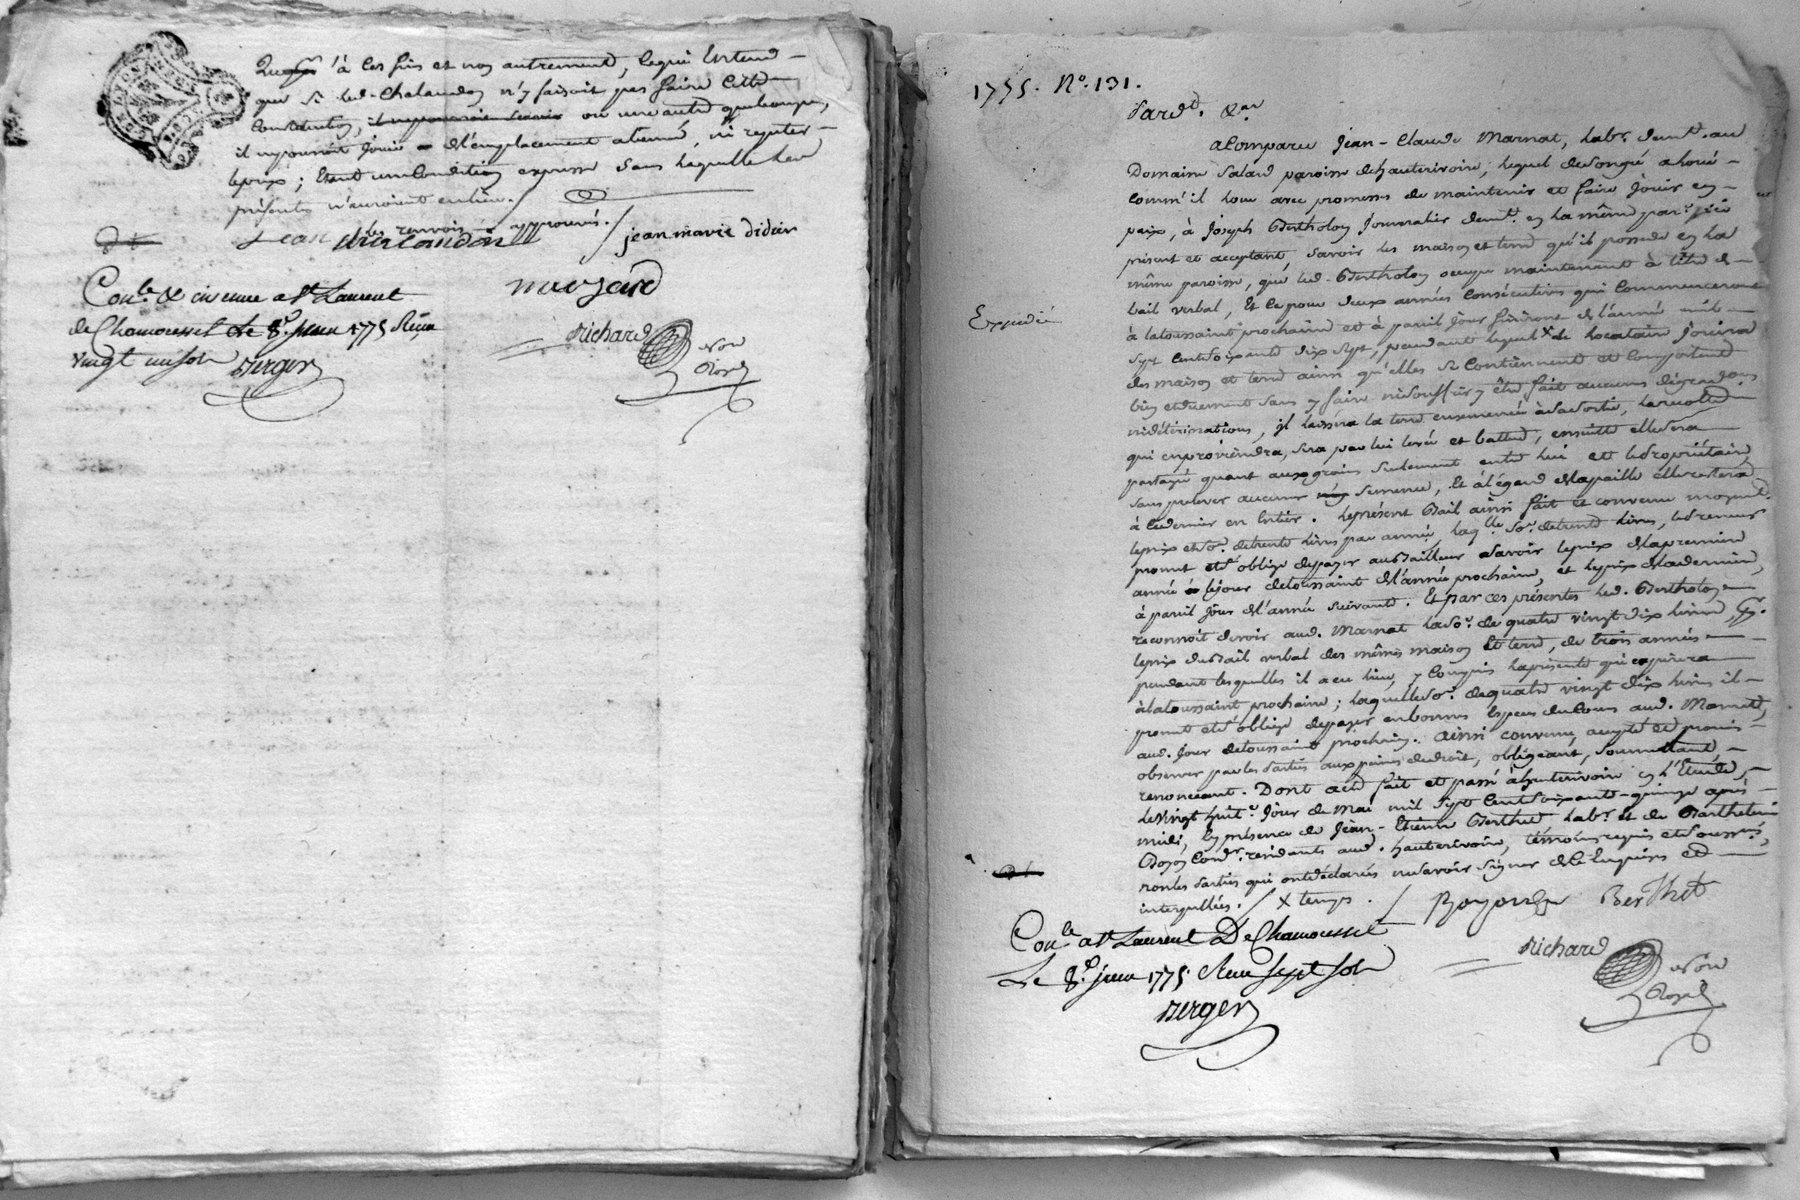 à ces fins et non autrement, ce qui entend
que si led. Chalandon n'y faisoit pas faire cette
construction, ou une autre quelconque,
il ne pourroit jouir de l'emplacement abenné, ni repeter
le prix; étant une condition expresse sans laquelle les
présentes n'auroient eu lieu./
les renvois approuvés./
jean chalandon
jean marie didier
Con.le & insinué a St Laurent
de Chamousset Le 8.e juin 1775 Reçu
vingt un sols Berger
Richard
Nore
Royal
1775. N.o 131.
Pard.t &.a
a Comparu Jean-Claude Marnat, lab.r dem.t au
Domaine Salard paroisse d'hauterivoire, lequel de son gré a loué
comm'il loue avec promesses de maintenir et faire jouir en
paix, à Joseph Bertholon Journalier dem.t en la même par.se ici
présent et acceptant, savoir les maison et terre qu'il possede en la
même paroisse, que led. Bertholon occupe maintenant à titre de
bail verbal, Et ce pour deux années consécutives qui commenceront
à la toussaint prochaine et à pareil jour finiront de l'année mil
Expedié
sept cent soixante dix sept, pendant lequel x le locataire jouira
des maison et terre ainsi qu'elles se contiennent et comportent
bien et duement sans y faire ni souffrir y être fait aucunes dégradations
ni détériorations, il laissera la terre ensemencée à sa sortie, la recolte
qui en proviendra, sera par lui levée et battue, ensuitte elle sera
partagée quant aux grains seulement entre lui et le propriétaire,
sans prelever aucune semence, Et à l'égard de la paille elle restera
à ce dernier en entier. Le présent Bail ainsi fait et convenu moyen.t
le prix et so.e de trente livres par année, laq.lle so.e de trente livres, le preneur
promet et s'oblige de payer au Bailleur savoir le prix de la premiere
année le jour de toussaint de l'année prochaine, et le prix de la derniere,
à pareil jour de l'année suivante. Et par ces présentes led. Bertholon
reconnoit devoir aud. Marnat la so.e de quatre vingt dix livres pr.
le prix du Bail verbal des mêmes maison et terre, de trois années
pendant lesquelles il a eu lieu, y compris la présente qui expirera
à la toussaint prochaine; laquelle so.e de quatre vingt dix livres il
promet et s'oblige de payer en bonnes especes de cours aud. Marnat,
aud. jour de toussaint prochain. Ainsi convenu, accepté et promis
observer par les Parties aux peines de droit, obligeant, soumettant
renonceant. Dont acte fait et passé à hauterivoire en l'Etude,
le vingt huit.e jour de mai mil sept cent soixante-quinze après
midi, en présence de Jean-Etiene Berthet lab.r et de Barthelemi
Boyon Cord.r résidants aud. hauterivoire, témoins requis et soussignés,
non les Parties qui ont déclarés ne savoir signer de ce enquises et
interpellées./ x temps./
Boyon Berthet
Con.le a St Laurent De Chamousset
Le 8.e juin 1775. Reçu sept sols
Berger
Richard
Nore
Royal